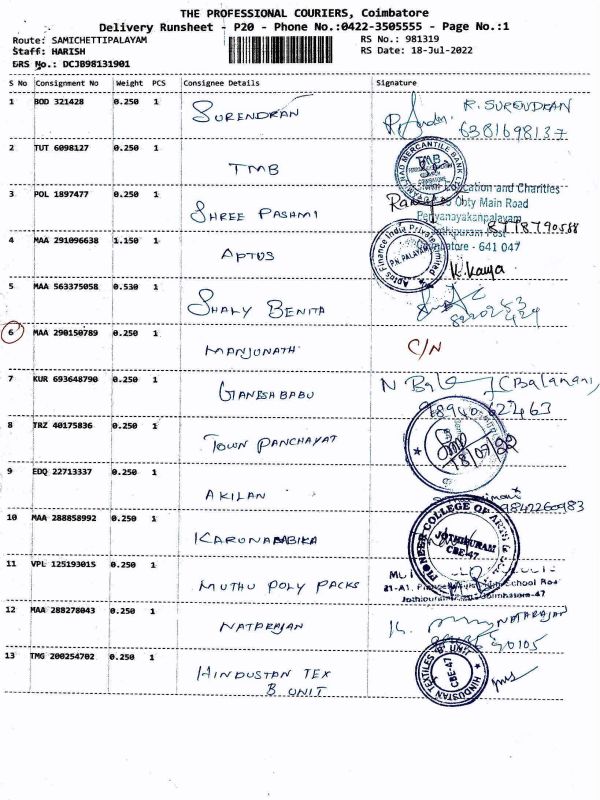 THE PROFESSIONAL COURIERS, Coimbatore
Delivery Runsheet - P20 - Phone No.:0422-3505555 - Page No.:1
Route: SAMICHETTIPALAYAM RS No.: 981319
Staff: HARISH RS Date: 18-Jul-2022
DRS No.: DCJB98131901
S No Consignment No Weight PCS Consignee Details Signature
1 BOD 321428 0.250 1 SURENDRAN R. SURENDRAN
6381698137
2 TUT 6098127 0.250 1 TMB TMB
3 POL 1897477 0.250 1 SHREE PASHMI
and Charities
Ooty Main Road
Periyanayakanpalayam
4 MAA 291096638 1.150 1 APTUS Aptus Finance India Private Limited
P.N. PALAYAM
641 047
K. Kavya
5 MAA 563375058 0.530 1 SHALY BENITA
6 MAA 290150789 0.250 1 MANJUNATH C/N
7 KUR 693648790 0.250 1 GANESH BABU
8 TRZ 40175836 0.250 1 TOWN PANCHAYAT
18/07/22
9 EDQ 22713337 0.250 1 AKILAN
9842260983
10 MAA 288858992 0.250 1 KARUNABABIKA PIONEER COLLEGE OF ARTS &
JOTHIPURAM
CBE-47
11 VPL 125193015 0.250 1 MUTHU POLY PACKS
School Roa
Coimbatore-47
12 MAA 288278043 0.250 1 NATRAJAN K. NATARAJAN
13 TMG 200254702 0.250 1 HINDUSTAN TEX HINDUSTAN TEXTILES 'B' UNIT
B UNIT CBE-47